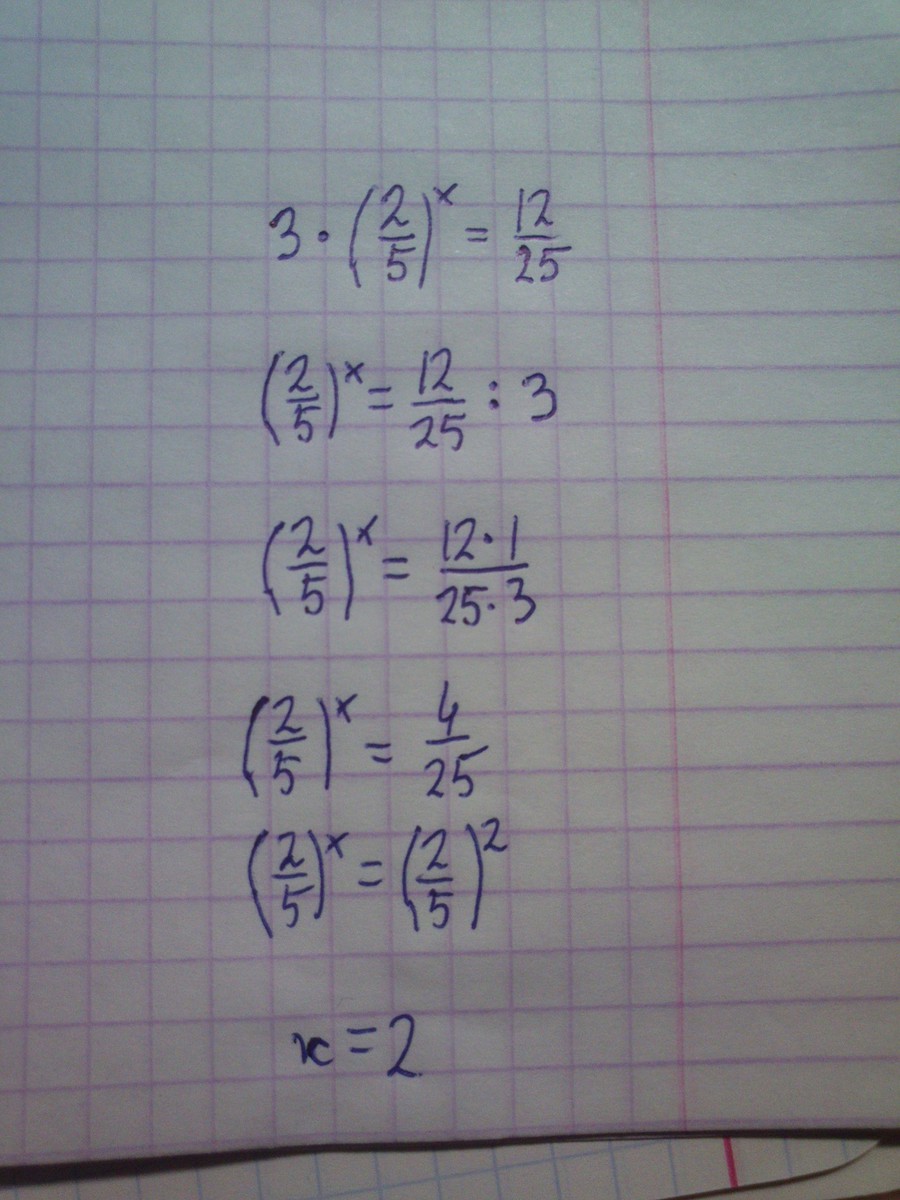 3 · (2/5)^x = 12/25
(2/5)^x = 12/25 : 3
(2/5)^x = 12·1/25·3
(2/5)^x = 4/25
(2/5)^x = (2/5)^2
x = 2